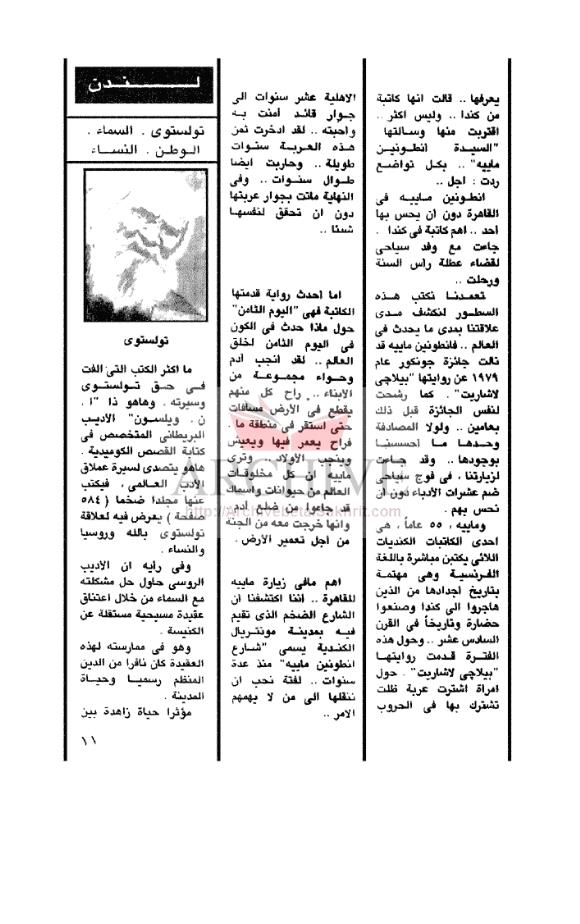 يعرفها .. قالت انها كاتبة
من كندا .. وليس اكثر ..
اقتربت منها وسالتها
"السيدة انطونين
ماييه" .. بكل تواضع
ردت : اجل ..
انطونين ماييه فى
القاهرة دون ان يحس بها
احد .. اهم كاتبة فى كندا .
جاءت مع وفد سياحى
لقضاء عطلة راس السنة
ورحلت ..
تعمدنا نكتب هذه
السطور لنكشف مدى
علاقتنا بمدى ما يحدث فى
العالم .. فانطونين ماييه قد
نالت جائزة جونكور عام
١٩٧٩ عن روايتها "بيلاجى
لاشاريت" . كما رشحت
لنفس الجائزة قبل ذلك
بعامين .. ولولا المصادفة
وحدها ما احسسنا
بوجودها .. وقد جاءت
لزيارتنا ، فى فوج سياحى
ضم عشرات الأدباء دون أن
نحس بهم .
وماييه ، ٥٥ عاماً ، هى
احدى الكاتبات الكنديات
اللائى يكتبن مباشرة باللغة
الفرنسية وهى مهتمة
بتاريخ اجدادها من الذين
هاجروا الى كندا وصنعوا
حضارة وتاريخاً فى القرن
السادس عشر .. وحول هذه
الفترة قدمت روايتها
"بيلاجى لاشاريت" . حول
امرأة اشترت عربة ظلت
تشترك بها فى الحروب
الاهلية عشر سنوات الى
جوار قائد امنت به
واحبته .. لقد ادخرت ثمن
هذه العربة سنوات
طويلة .. وحاربت ايضا
طوال سنوات .. وفى
النهاية ماتت بجوار عربتها
دون ان تحقق لنفسها
شيئا ..
اما احدث رواية قدمتها
الكاتبة فهى "اليوم الثامن"
حول ماذا حدث فى الكون
فى اليوم الثامن لخلق
العالم .. لقد انجب ادم
وحواء مجموعة من
الأبناء .. راح كل منهم
يقطع فى الأرض مسافات
حتى استقر فى منطقة ما
فراح يعمر فيها ويعيش
وينجب الأولاد .. وترى
ماييه ان كل مخلوقات
العالم من حيوانات واسماك
قد جاءوا من ضلع ادم .
وانها خرجت معه من الجنة
من أجل تعمير الأرض .
اهم مافى زيارة ماييه
للقاهرة .. أننا اكتشفنا ان
الشارع الضخم الذى تقيم
فيه بمدينة مونتريال
الكندية يسمى "شارع
انطونين ماييه" منذ عدة
سنوات .. لفتة نحب ان
ننقلها الى من لا يهمهم
الامر ..
لـنـدن
تولستوى . السماء .
الوطن . النساء
تولستوى
ما اكثر الكتب التى الفت
فى حق تولستوى
وسيرته . وهاهو ذا "ا .
ن . ويلسون" الأديب
البريطانى المتخصص فى
كتابة القصص الكوميدية .
هاهو يتصدى لسيرة عملاق
الأدب العالمى ، فيكتب
عنها مجلدا ضخما ( ٥٨٤
صفحة ) يعرض فيه لعلاقة
تولستوى بالله وروسيا
والنساء .
وفى رايه ان الأديب
الروسى حاول حل مشكلته
مع السماء من خلال اعتناق
عقيدة مسيحية مستقلة عن
الكنيسة .
وهو فى ممارسته لهذه
العقيدة كان نافرا من الدين
المنظم رسميا وحياة
المدينة .
مؤثرا حياة زاهدة بين
١١
ARCHIVE
http://Archivebeta.Sakhrit.com